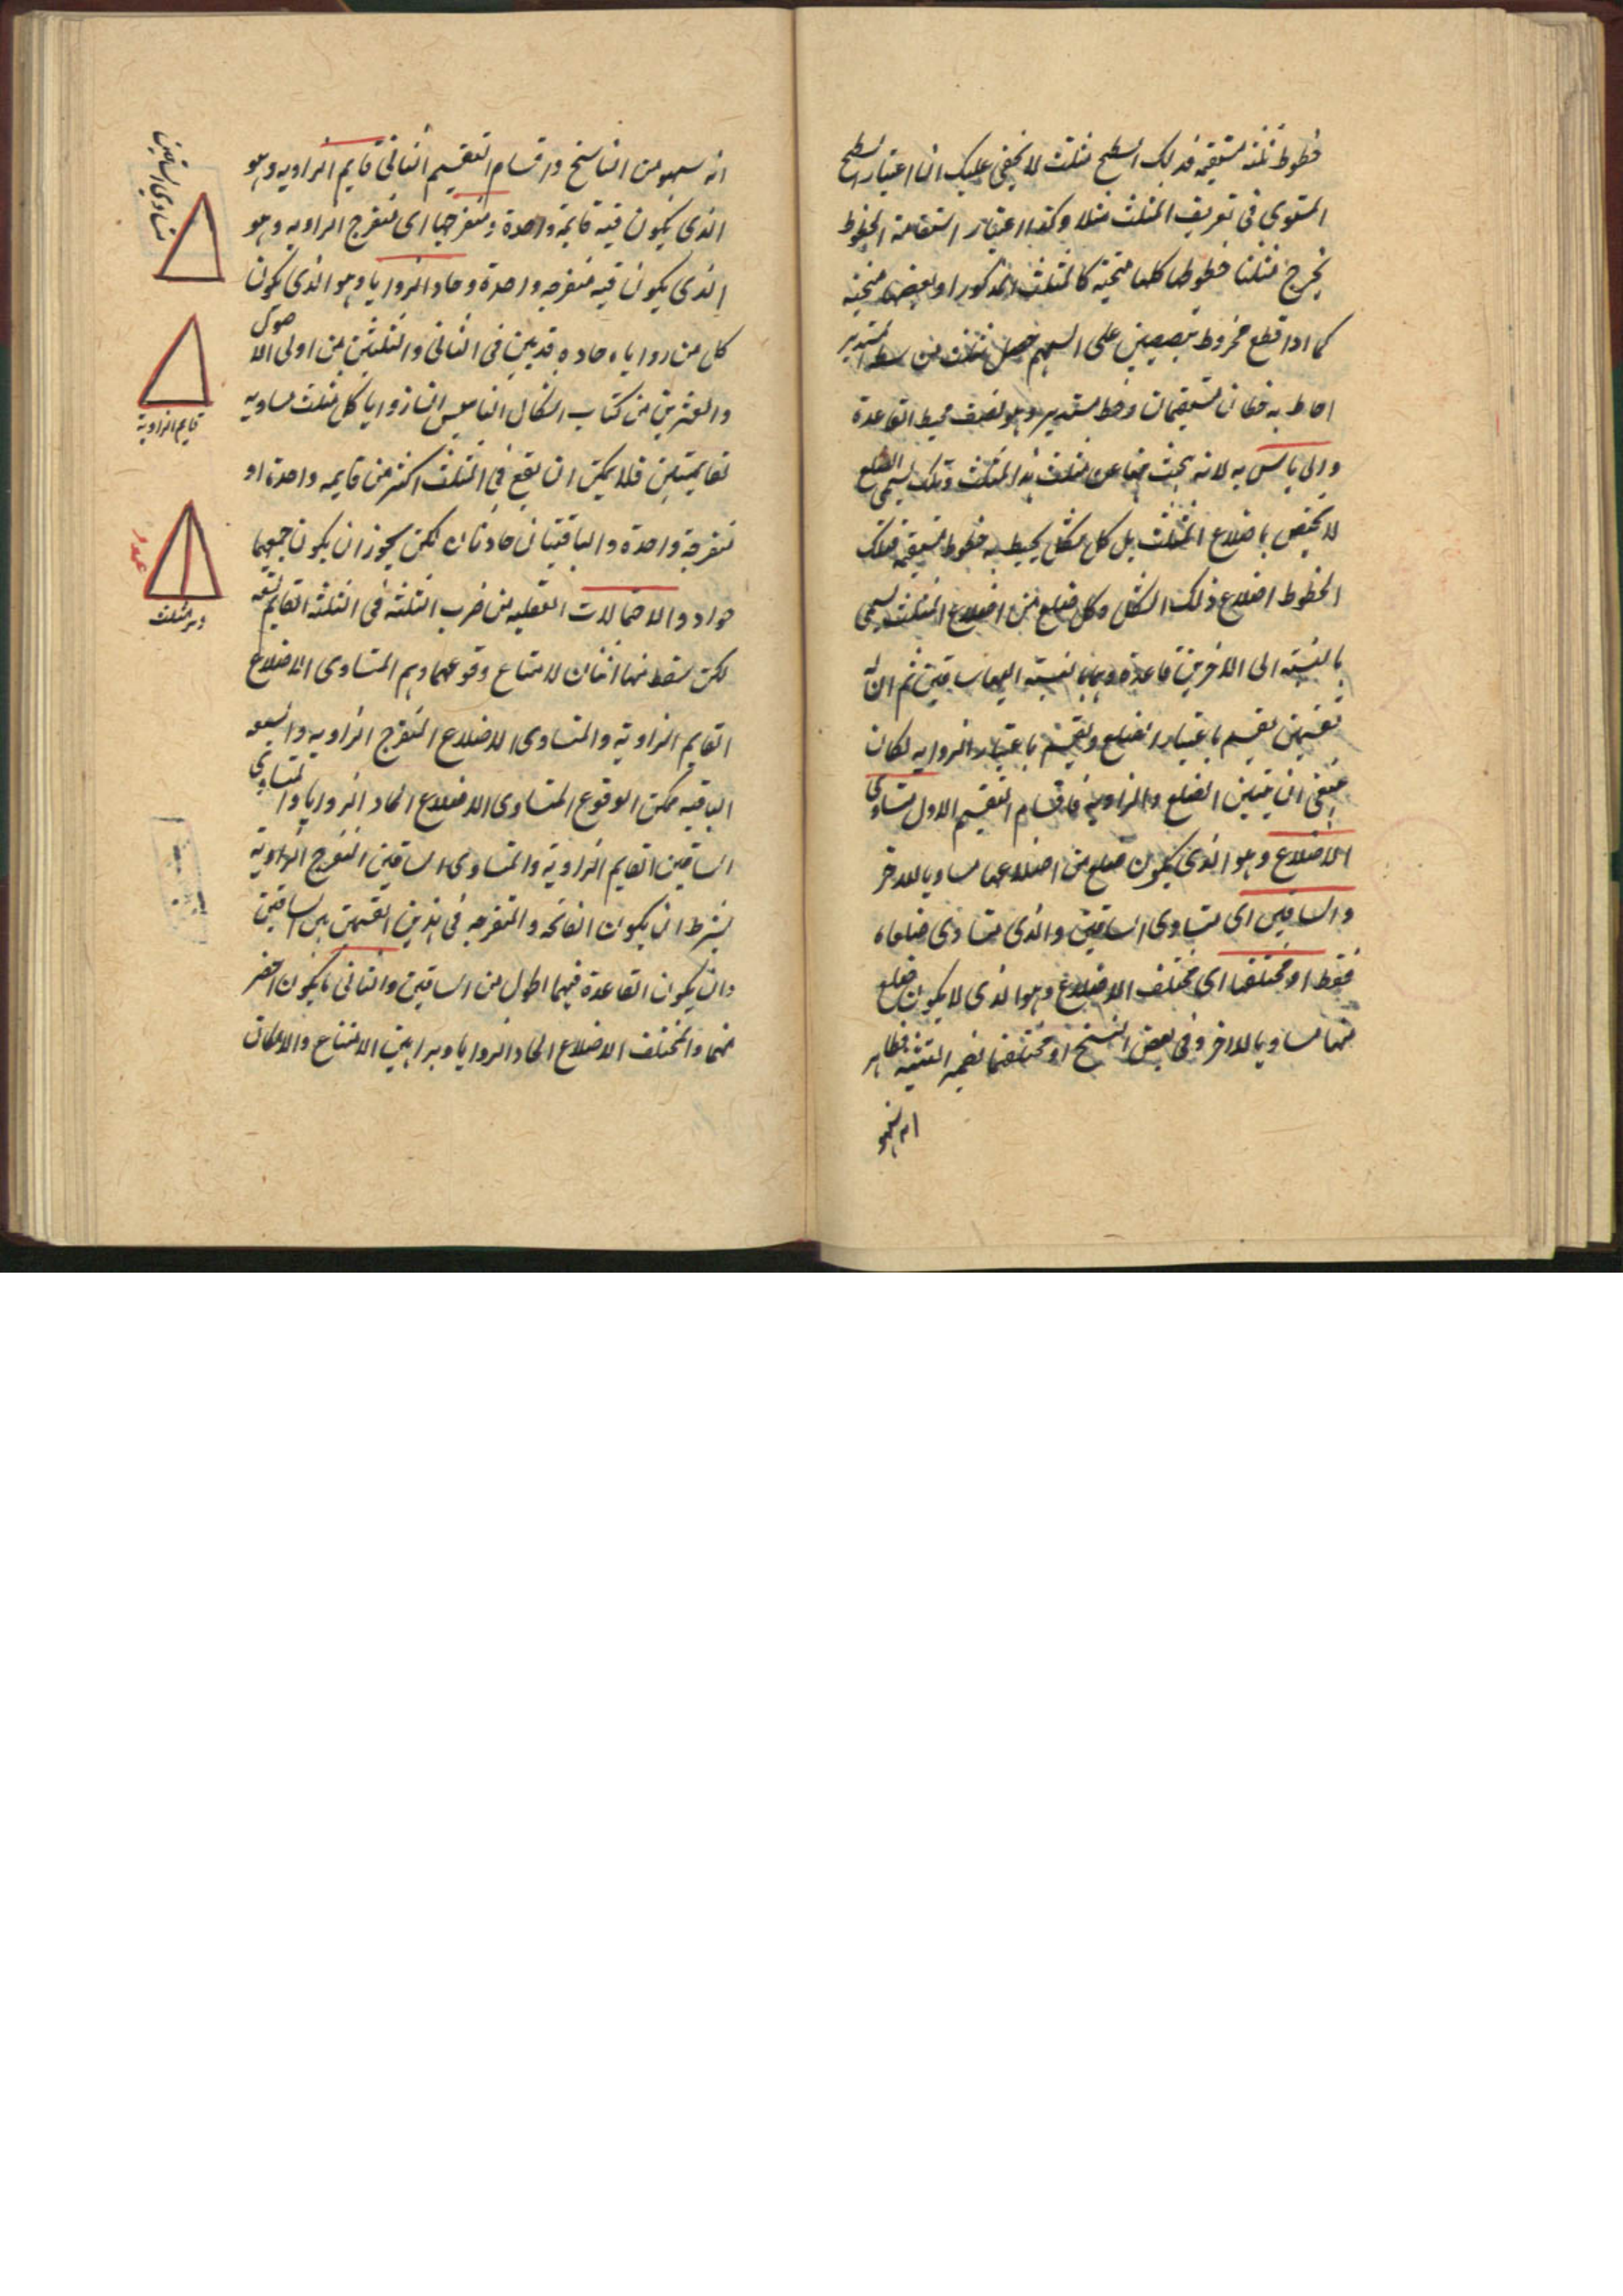 خطوط ثلثه مستقيمه فذلك السطح مثلث لا يخفى عليك ان اعتبار السطح
المستوى فى تعريف المثلث مثلا وكذا اعتبار استقامة الخطوط
يخرج مثلثا خطوطها كلها منحنيه كالمثلث المذكور او بعضها منحنيه
كما اذا قطع مخروط بنصفين على السهم حصل مثلث من سطحه المستدير
احاط به خطان مستقيمان وخط مستدير وهو نصف محيط القاعدة
ولا باس به لانه يبحث عن مثلث هذا المثلث وتلك يسمى اضلع
لا يختص باضلاع المثلث بل كل شكل يحيط به خطوط مستقيمه فتلك
الخطوط اضلاع ذلك الشكل وكل ضلع من اضلاع المثلث يسمى
بالنسبة الى الاخرين قاعدة وهما بالنسبة اليها ساقين ثم ان له
تقسيمين تقسيم باعتبار الضلع وتقسيم باعتبار الزوايه لكان
الضلع والزاويه فاقسام التقسيم الاول متساوى
الاضلاع وهو الذى يكون ضلع من اضلاعها مساويا للاخر
والساقين اى متساوى الساقين والذى متساوى ضلعاه
فقط او مختلفها اى مختلف الاضلاع وهو الذى لا يكون ضلع
منها مساويا للاخر وفى بعض النسخ او مختلفهما بضمير التثنيه فظاهر
انه سهو
انه سهو من الناسخ واقسام التقسيم الثانى قايم الزاويه وهو
الذى يكون فيه قايمة واحدة ومنفرجها اى منفرج الزاويه وهو
الذى يكون فيه منفرجه واحدة وحاد الزوايا وهو الذى يكون
كل من زواياه حاده قد بين فى الثانى والثلثين من اولى الاصول
والعشرين من كتاب اشكال التاسيس ان زوايا كل مثلث مساويه
لقايمتين فلا يمكن ان يقع فى المثلث اكثر من قايمه واحدة او
منفرجة واحدة والباقيتان حادتان لكن يجوز ان يكون جميعها
حواد والاحتمالات العقليه من ضرب الثلثه فى الثلثه القايم تسعه
لكن سقط منها اثنان لامتناع وقوعهما وهم المتساوى الاضلاع
القايم الزاوية والمتساوى الاضلاع المنفرج الزاويه والسبعه
الباقيه ممكن الوقوع المتساوى الاضلاع الحاد الزوايا والمتساوى
الساقين القايم الزاوية والمتساوى الساقين المنفرج الزاوية
بشرط ان يكون القائمه والمنفرجه فى هذين القسمين بين الساقين
وان يكون القاعدة فيهما اطول من الساقين والثانى ما يكون اقصر
منهما والمختلف الاضلاع الحاد الزوايا وبراهين الامتناع والامكان
متساوى الساقين
قايم الزاوية
عمود
وتر مثلث